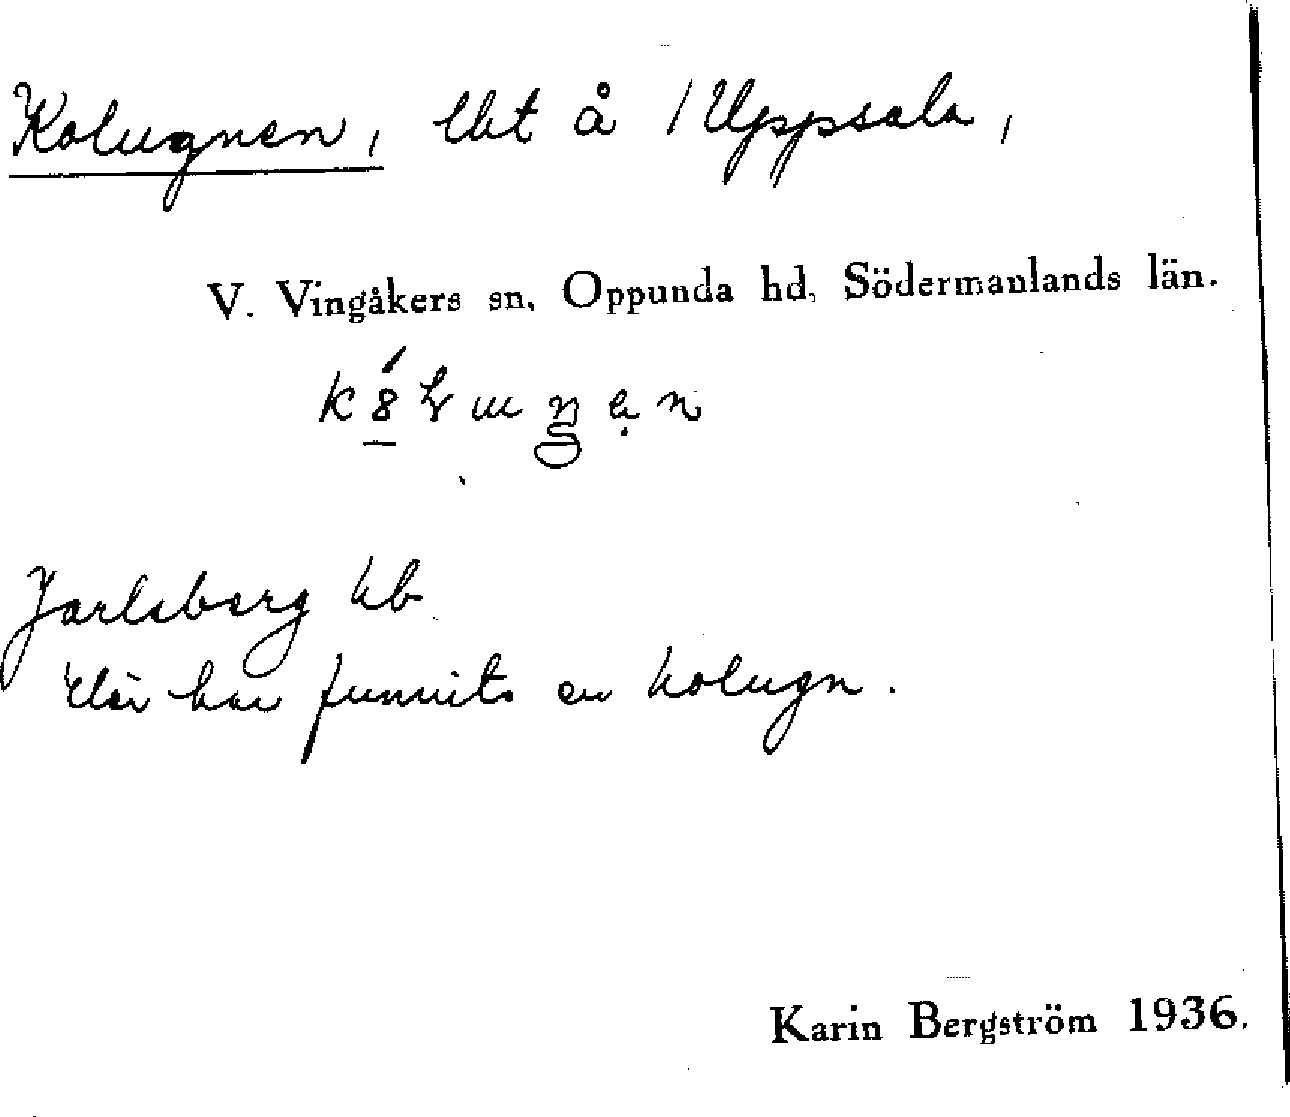 Kolugnen, lht å /Uppsala,
V. Vingåkers sn. Oppunda hd, Södermanlands län.
Jarlsberg hb
där har funnits en kolugn.
Karin Bergström 1936.